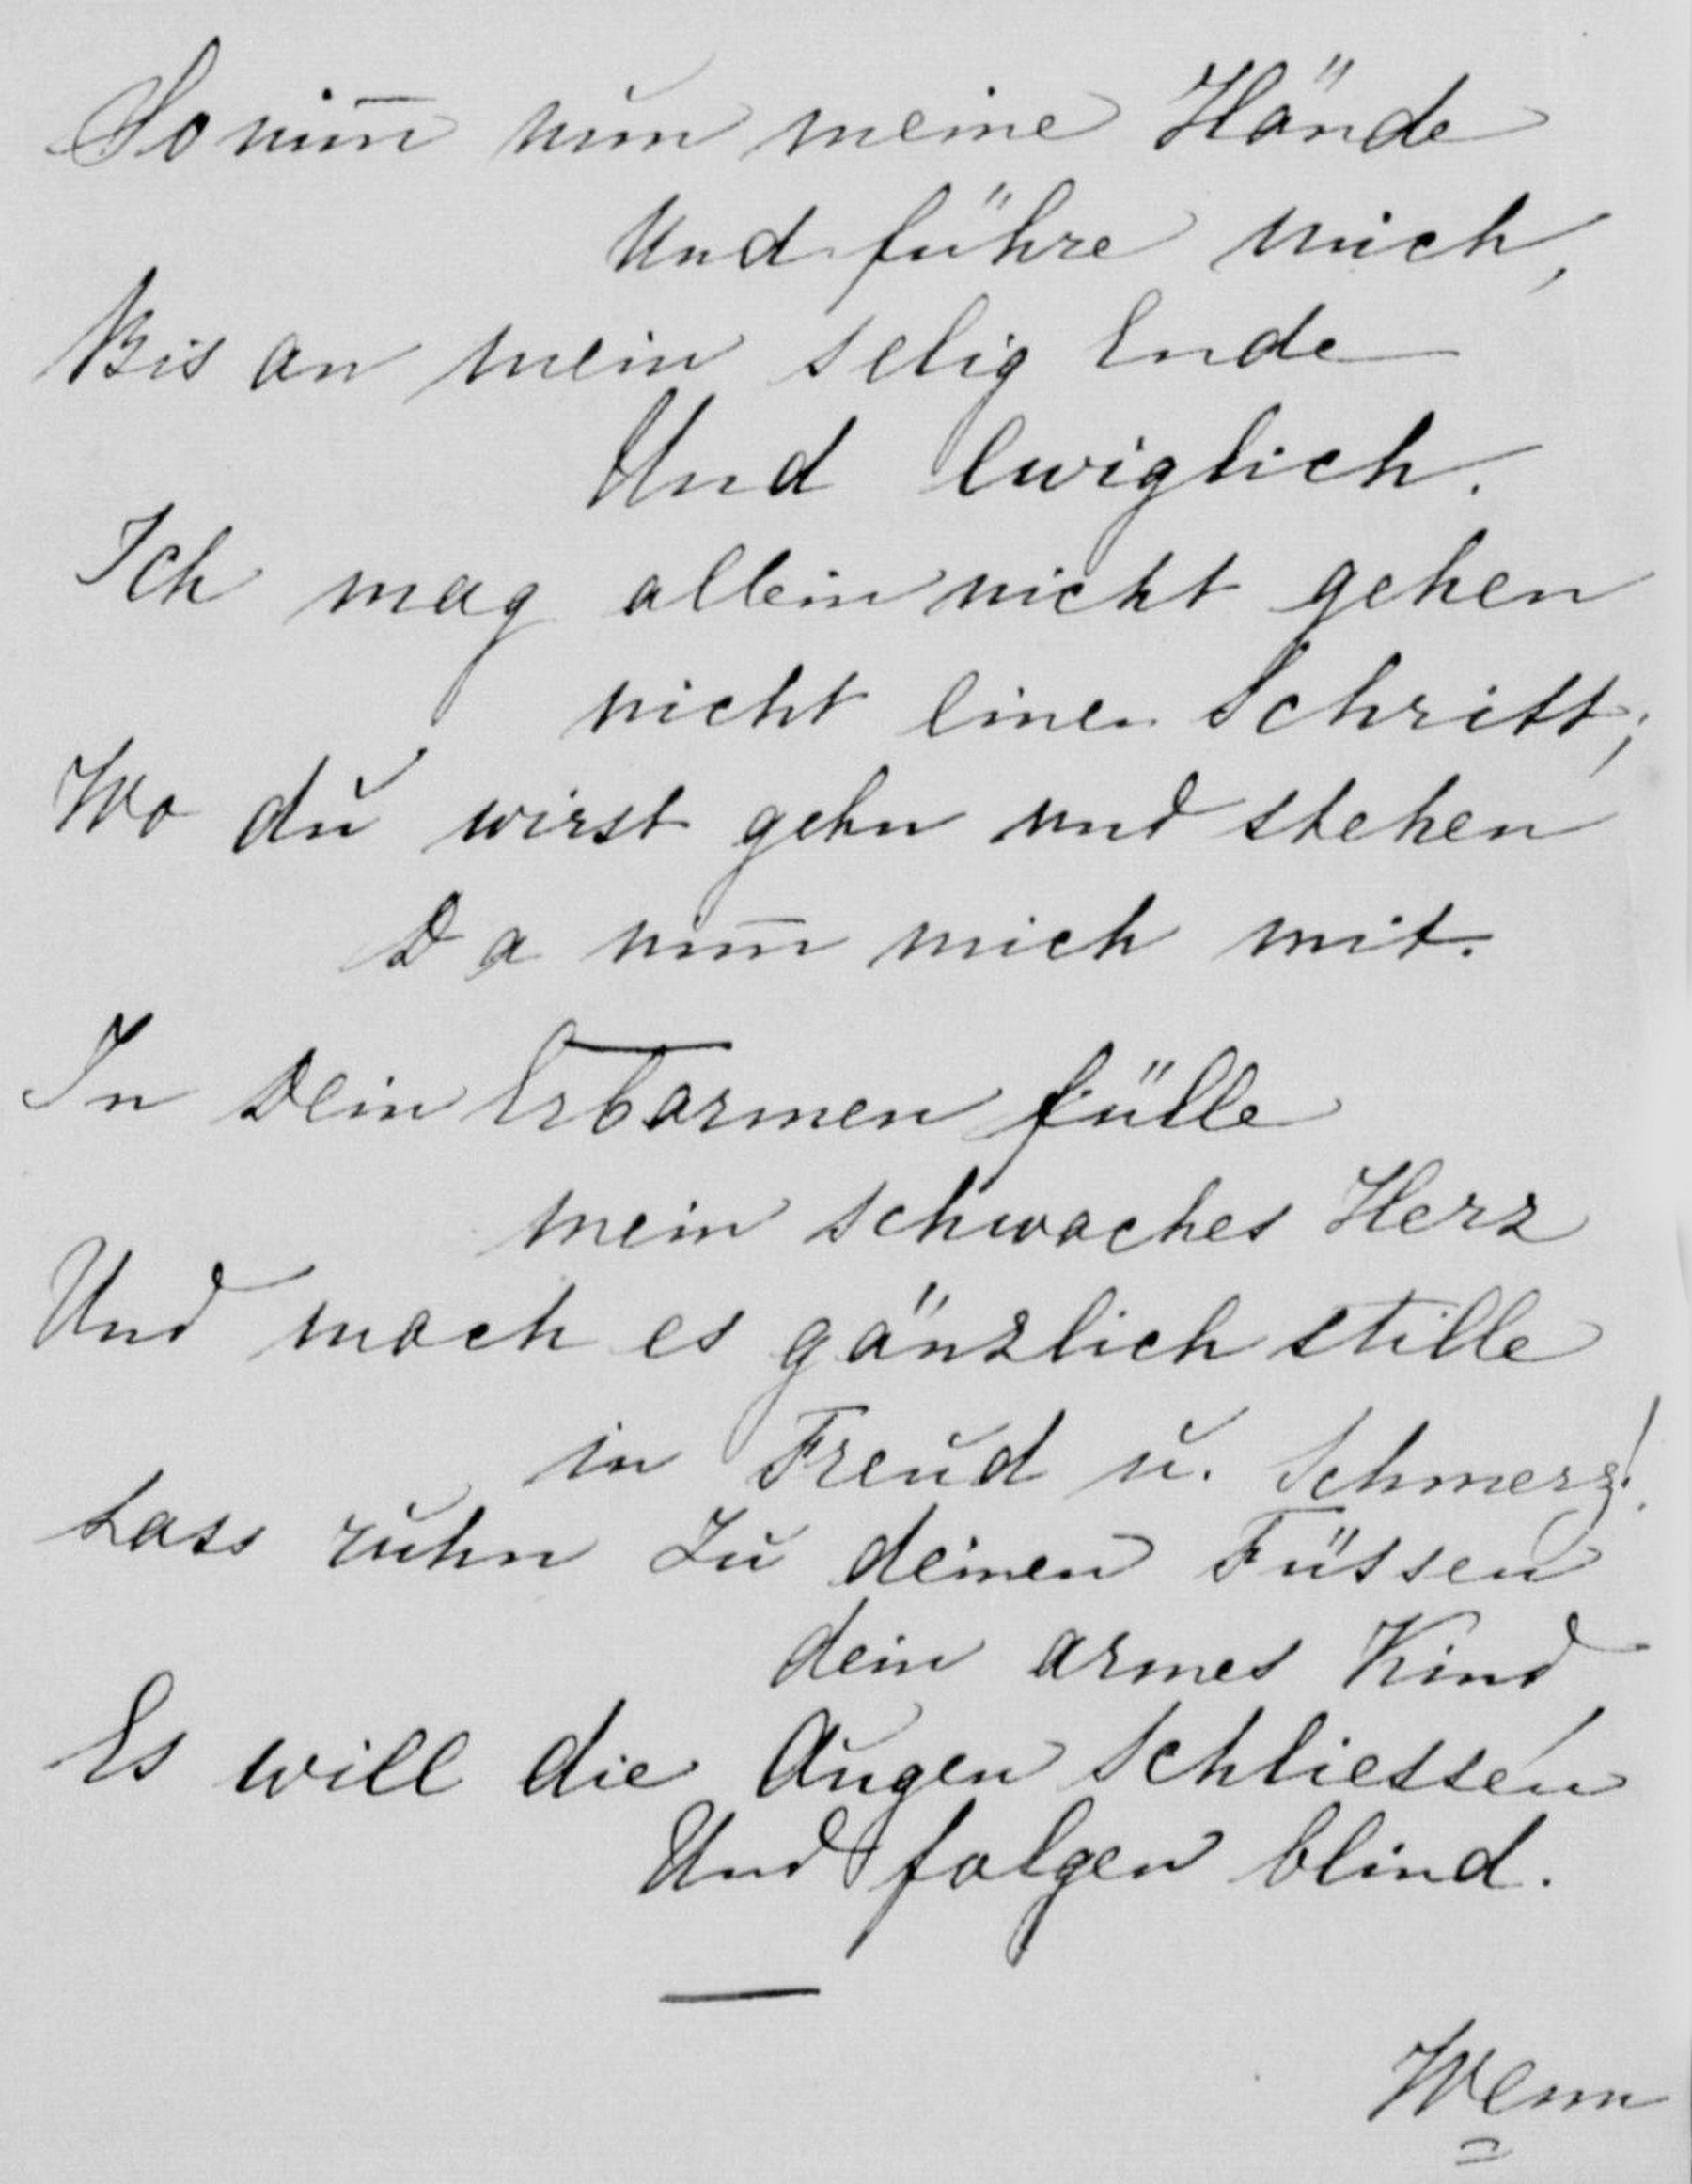 So nim̅ nun meine Hände
Und führe mich,
Bis an mein selig Ende
Und Ewiglich.
Ich mag allein nicht gehen
nicht einen Schritt;
Wo du wirst gehn und stehen
Da nim̅ mich mit.
In Dein Erbarmen fülle
mein schwaches Herz
Und mach es gänzlich stille
in Freud u. Schmerz!
Lass ruhn zu deinen Füssen
dein armes Kind
Es will die Augen schliessen
Und folgen blind.
Wenn